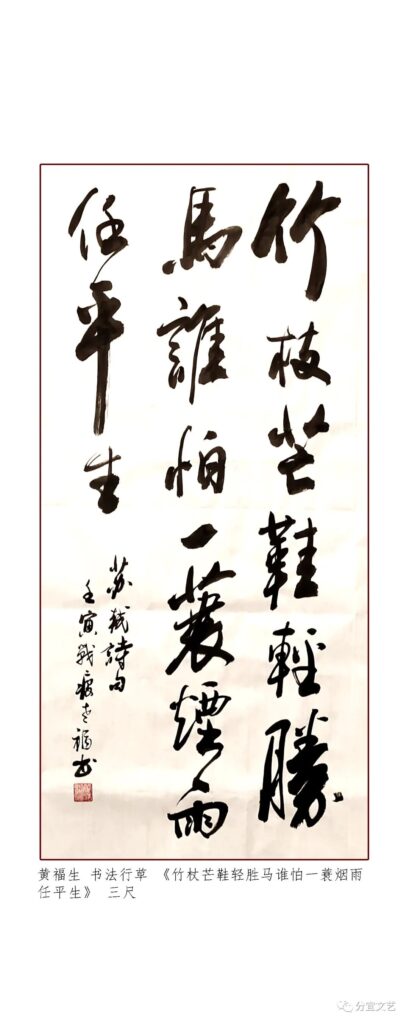 竹枝芒鞋輕勝
馬誰怕一蓑煙雨
任平生
苏軾詩句
壬寅戰疫老福书
黄福生 书法行草 《竹杖芒鞋轻胜马谁怕一蓑烟雨
任平生》 三尺
分宜文艺